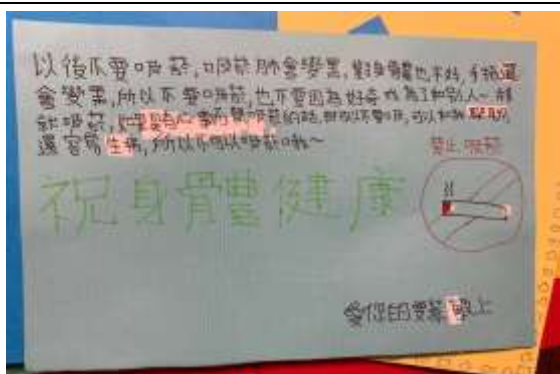 以後不要吸菸,吸菸肺會變黑,對身體也不好,手指還
會變黑,所以不要吸菸,也不要因為好奇或為了和別人一樣
就吸菸,如果有心事想吸菸的話,可以和我
還容易生病,所以不可以吸菸哦~
禁止吸菸
祝身體健康
愛你的 上